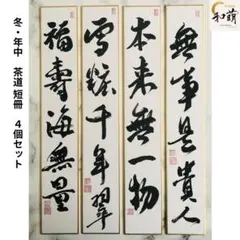 和萌
冬・年中　茶道 短冊　4個セット
無事是貴人
本来無一物
雪粧千年翠
福寿海無量